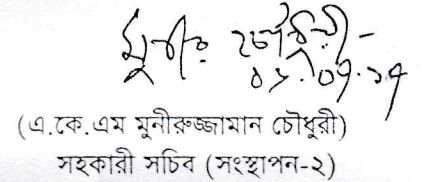 মুনীর চৌধুরী
০১.০৭.১৭
(এ.কে.এম মুনীরুজ্জামান চৌধুরী)
সহকারী সচিব (সংস্থাপন-২)